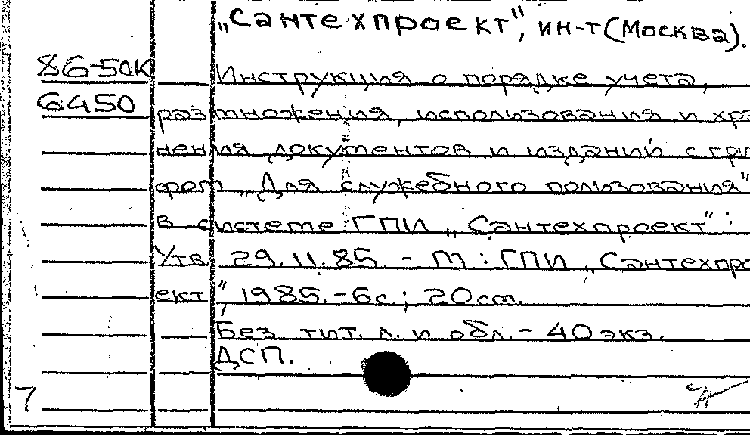 „Сантехпроект", ин-т (Москва).
86-50к Инструкция о порядке учета,
6450 размножения, использования и хра
нения документов и изданий с гри
фом „Для служебного пользования"
в системе ГПИ „Сантехпроект":
Утв. 29.11.85. - М: ГПИ „Сантехпро
ект", 1985.-6с.; 20см.
Без тит. л. и обл. - 40 экз.
ДСП.
7